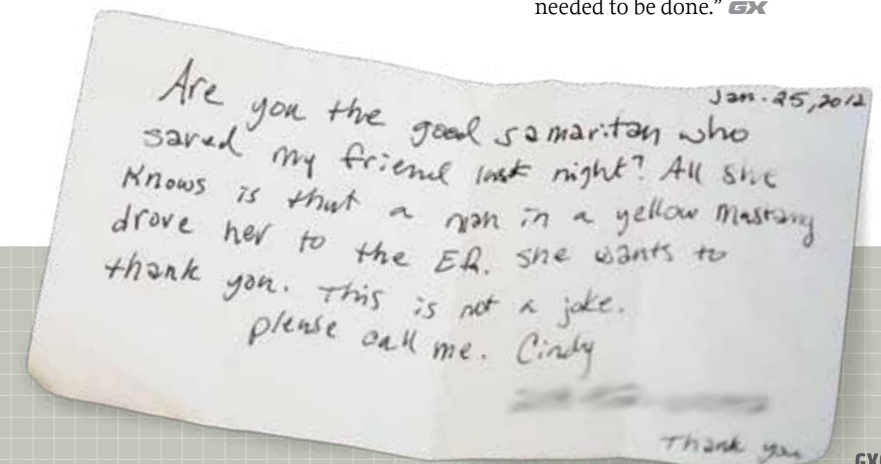 needed to be done.” GX
Jan. 25, 2012
Are you the good samaritan who
saved my friend last night? All she
knows is that a man in a yellow Mustang
drove her to the ER. she wants to
thank you. This is not a joke.
please call me. Cindy
Thank you